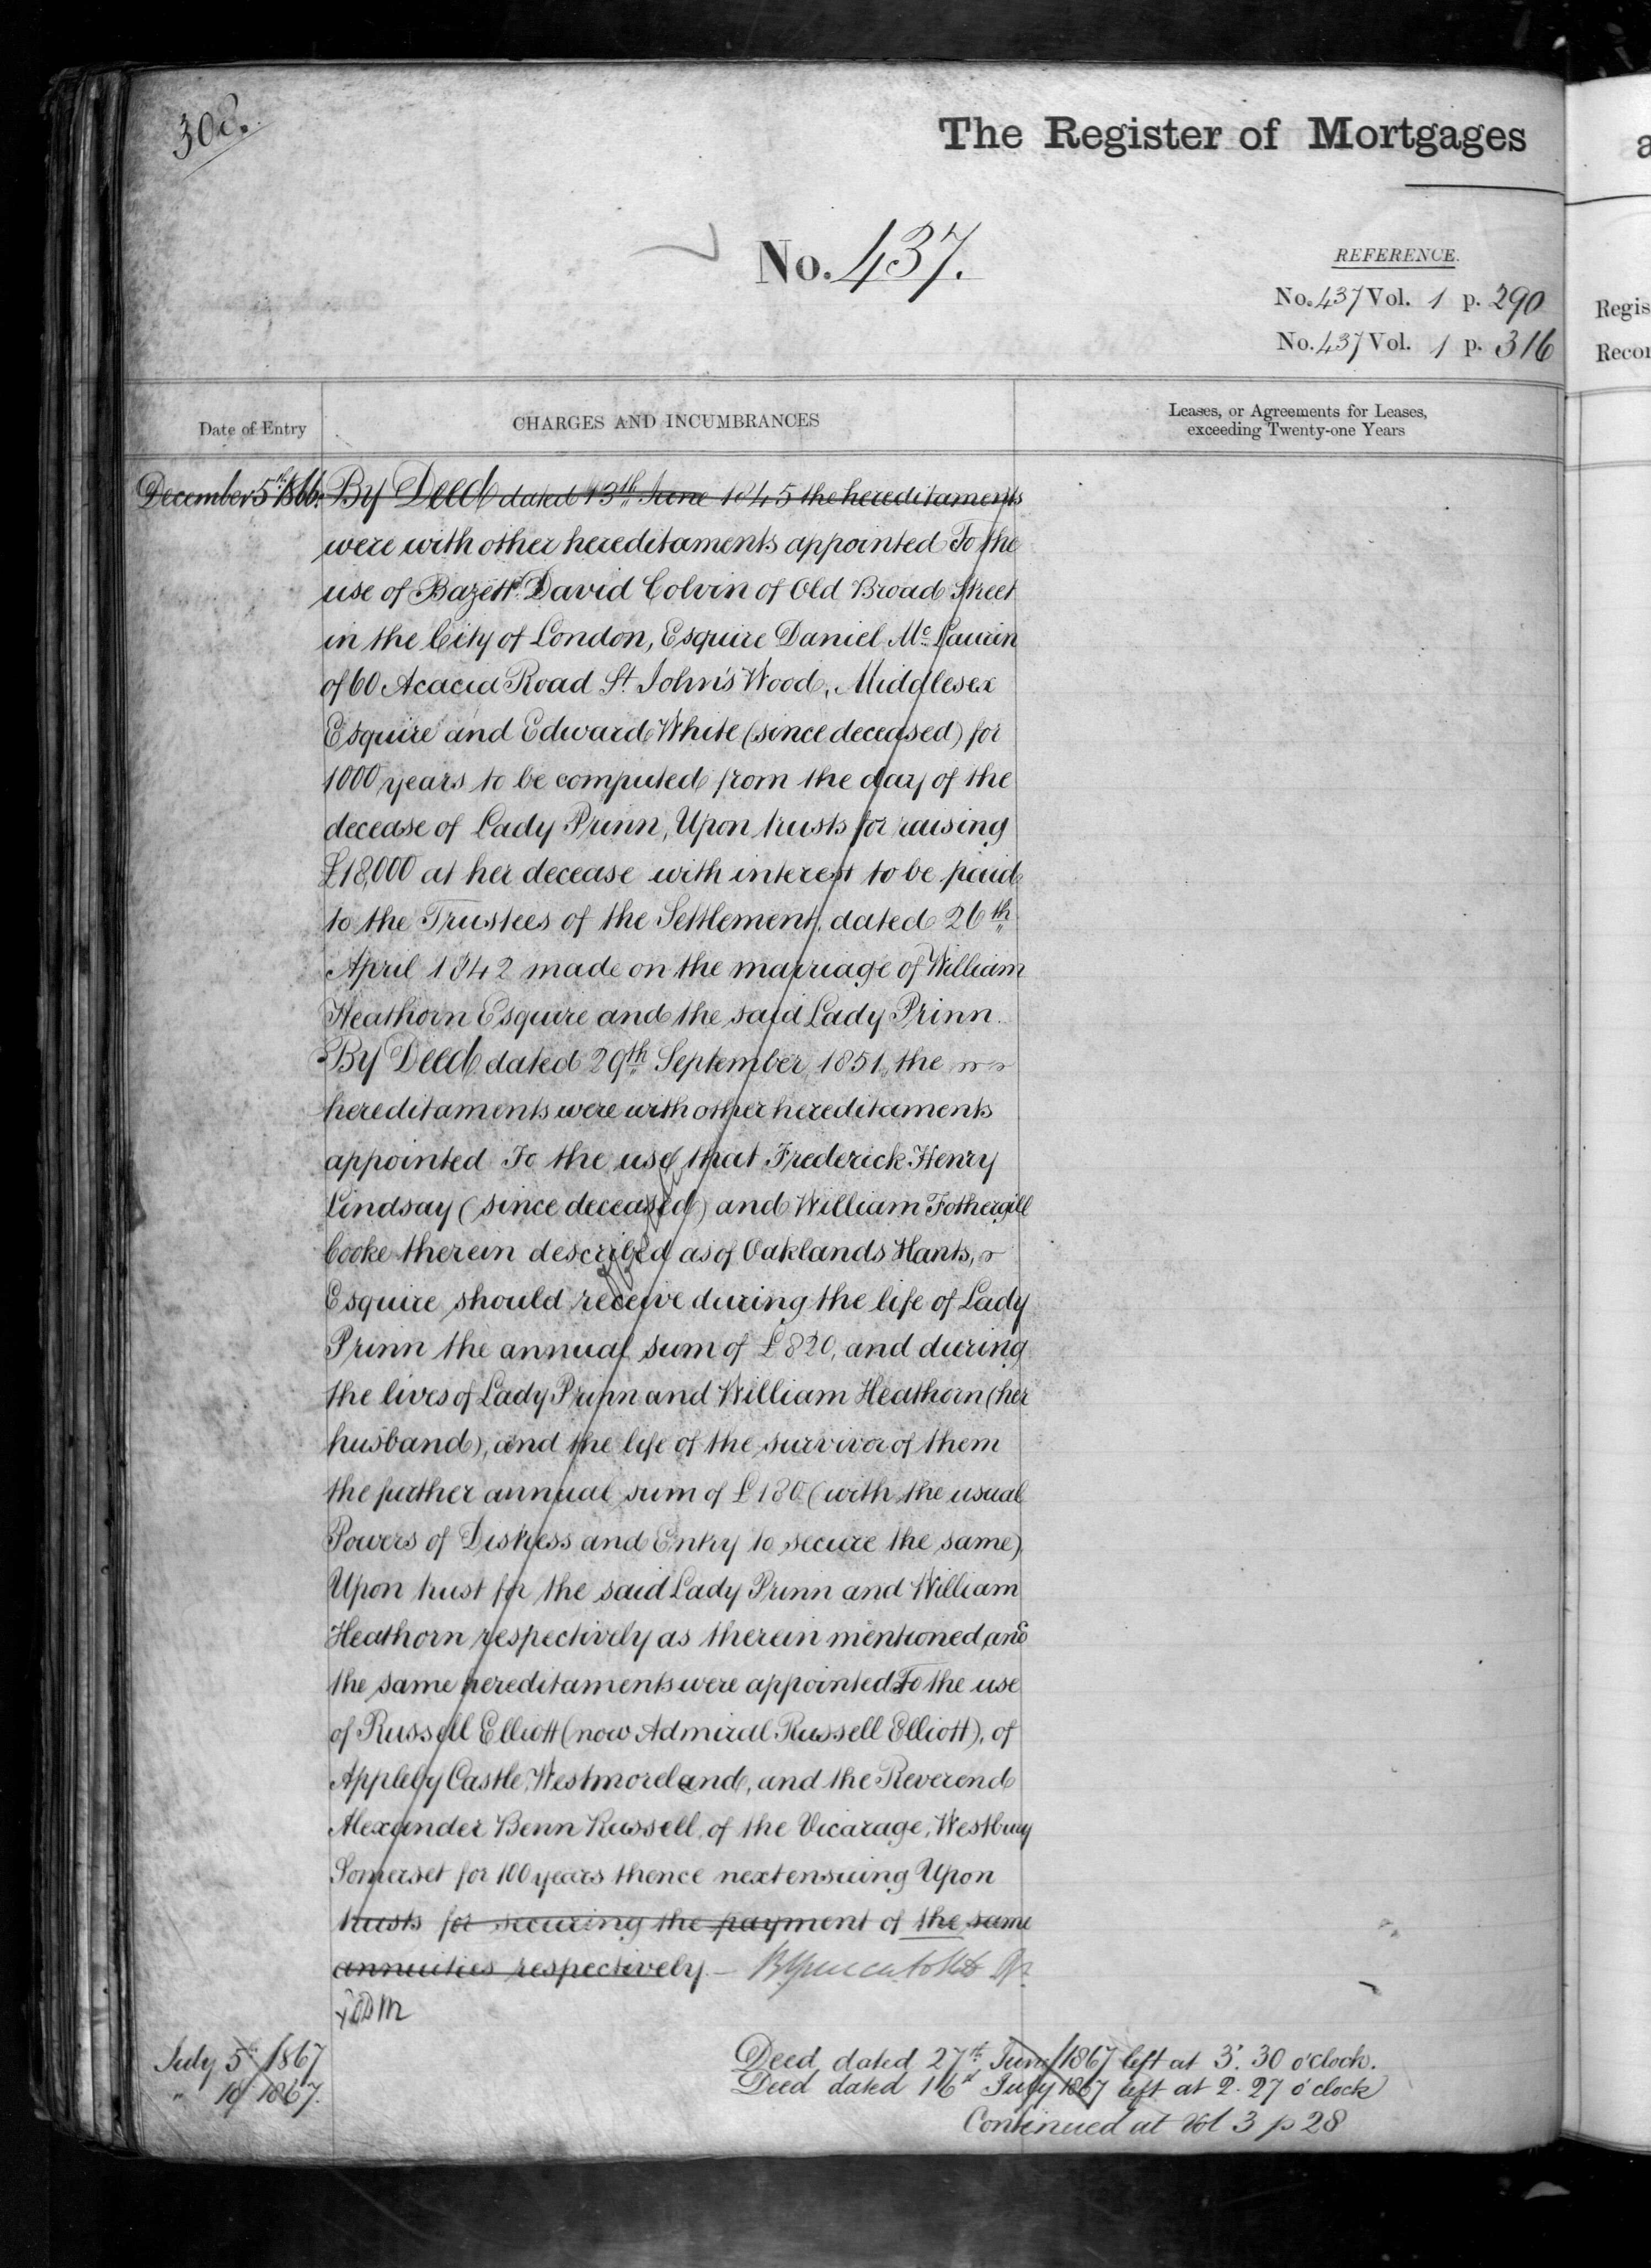 308.
The Register of Mortgages
No. 437.
REFERENCE.
No. 437 Vol. 1 p. 290
No. 437 Vol. 1 p. 316
Regis
Recor
Date of Entry
CHARGES AND INCUMBRANCES
Leases, or Agreements for Leases,
exceeding Twenty-one Years
December 5th 1866. By Deed dated 13th June 1845 the hereditaments
were with other hereditaments appointed To the
use of Bazett David Colvin of Old Broad Street
in the City of London, Esquire Daniel Mc Laurin
of 60 Acacia Road St. John's Wood, Middlesex
Esquire and Edward White (since deceased) for
1000 years to be computed from the day of the
decease of Lady Prinn, Upon trusts for raising
£18,000 at her decease with interest to be paid
to the Trustees of the Settlement, dated 26th
April 1842 made on the marriage of William
Heathorn Esquire and the said Lady Prinn.
By Deed dated 29th September 1851, the
hereditaments were with other hereditaments
appointed To the use that Frederick Henry
Lindsay (since deceased) and William Fothergill
Cooke therein described as of Oaklands Hants,
Esquire should receive during the life of Lady
Prinn the annual sum of £820, and during
the lives of Lady Prinn and William Heathorn (her
husband), and the life of the survivor of them
the further annual sum of £180 (with the usual
Powers of Distress and Entry to secure the same)
Upon trust for the said Lady Prinn and William
Heathorn respectively as therein mentioned, and
the same hereditaments were appointed To the use
of Russell Elliott (now Admiral Russell Elliott), of
Appleby Castle, Westmoreland, and the Reverend
Alexander Benn Russell, of the Vicarage, Westbury
Somerset for 100 years thence next ensuing Upon
trusts for securing the payment of the same
annuities respectively.
July 5th 1867
" 16 1867.
Deed dated 27th June 1867 left at 3.30 o'clock.
Deed dated 16th July 1867 left at 2.27 o'clock
Continued at Vol 3 p 28